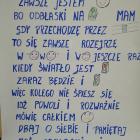 ZAWSZE JESTEM
BO ODBLASKI NA MAM
GDY PRZECHODZĘ PRZEZ
TO SIĘ ZAWSZE ROZEJRZĘ
W I JESZCZE RAZ
KIEDY ŚWIATŁO JEST
ZARAZ BĘDZIE I
WIĘC KOLEGO NIE SPIESZ SIĘ
IDŹ POWOLI I ROZWAŻNIE
MÓWIĘ CAŁKIEM
DBAJ O SIEBIE I PAMIĘTAJ